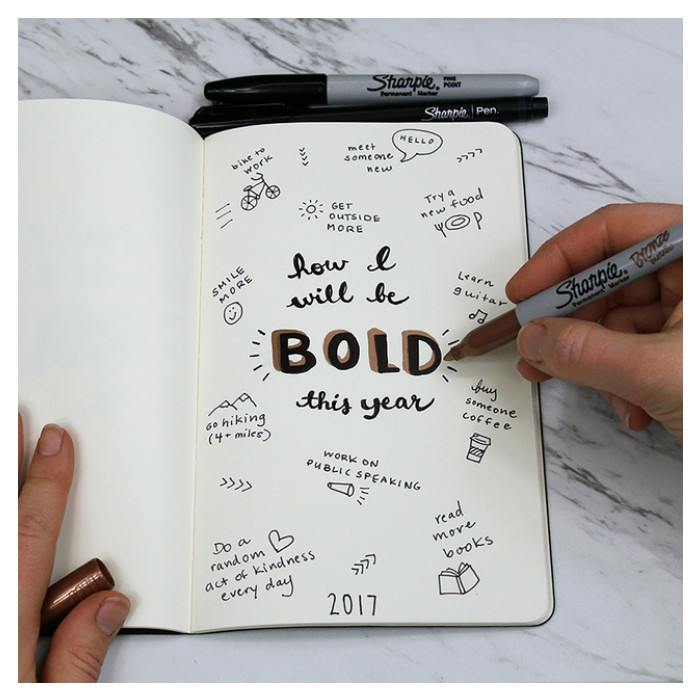 Sharpie® FINE POINT
Permanent Marker
Sharpie® Pen.
bike to
work
meet
someone
new
HELLO
GET
OUTSIDE
MORE
Try a
new food
how I
will be
BOLD
this year
SMILE
MORE
Learn
guitar
Sharpie®
Permanent Marker
Bronze
go hiking
(4+ miles)
buy
someone
coffee
WORK ON
PUBLIC SPEAKING
Do a
random
act of kindness
every day
read
more
books
2017